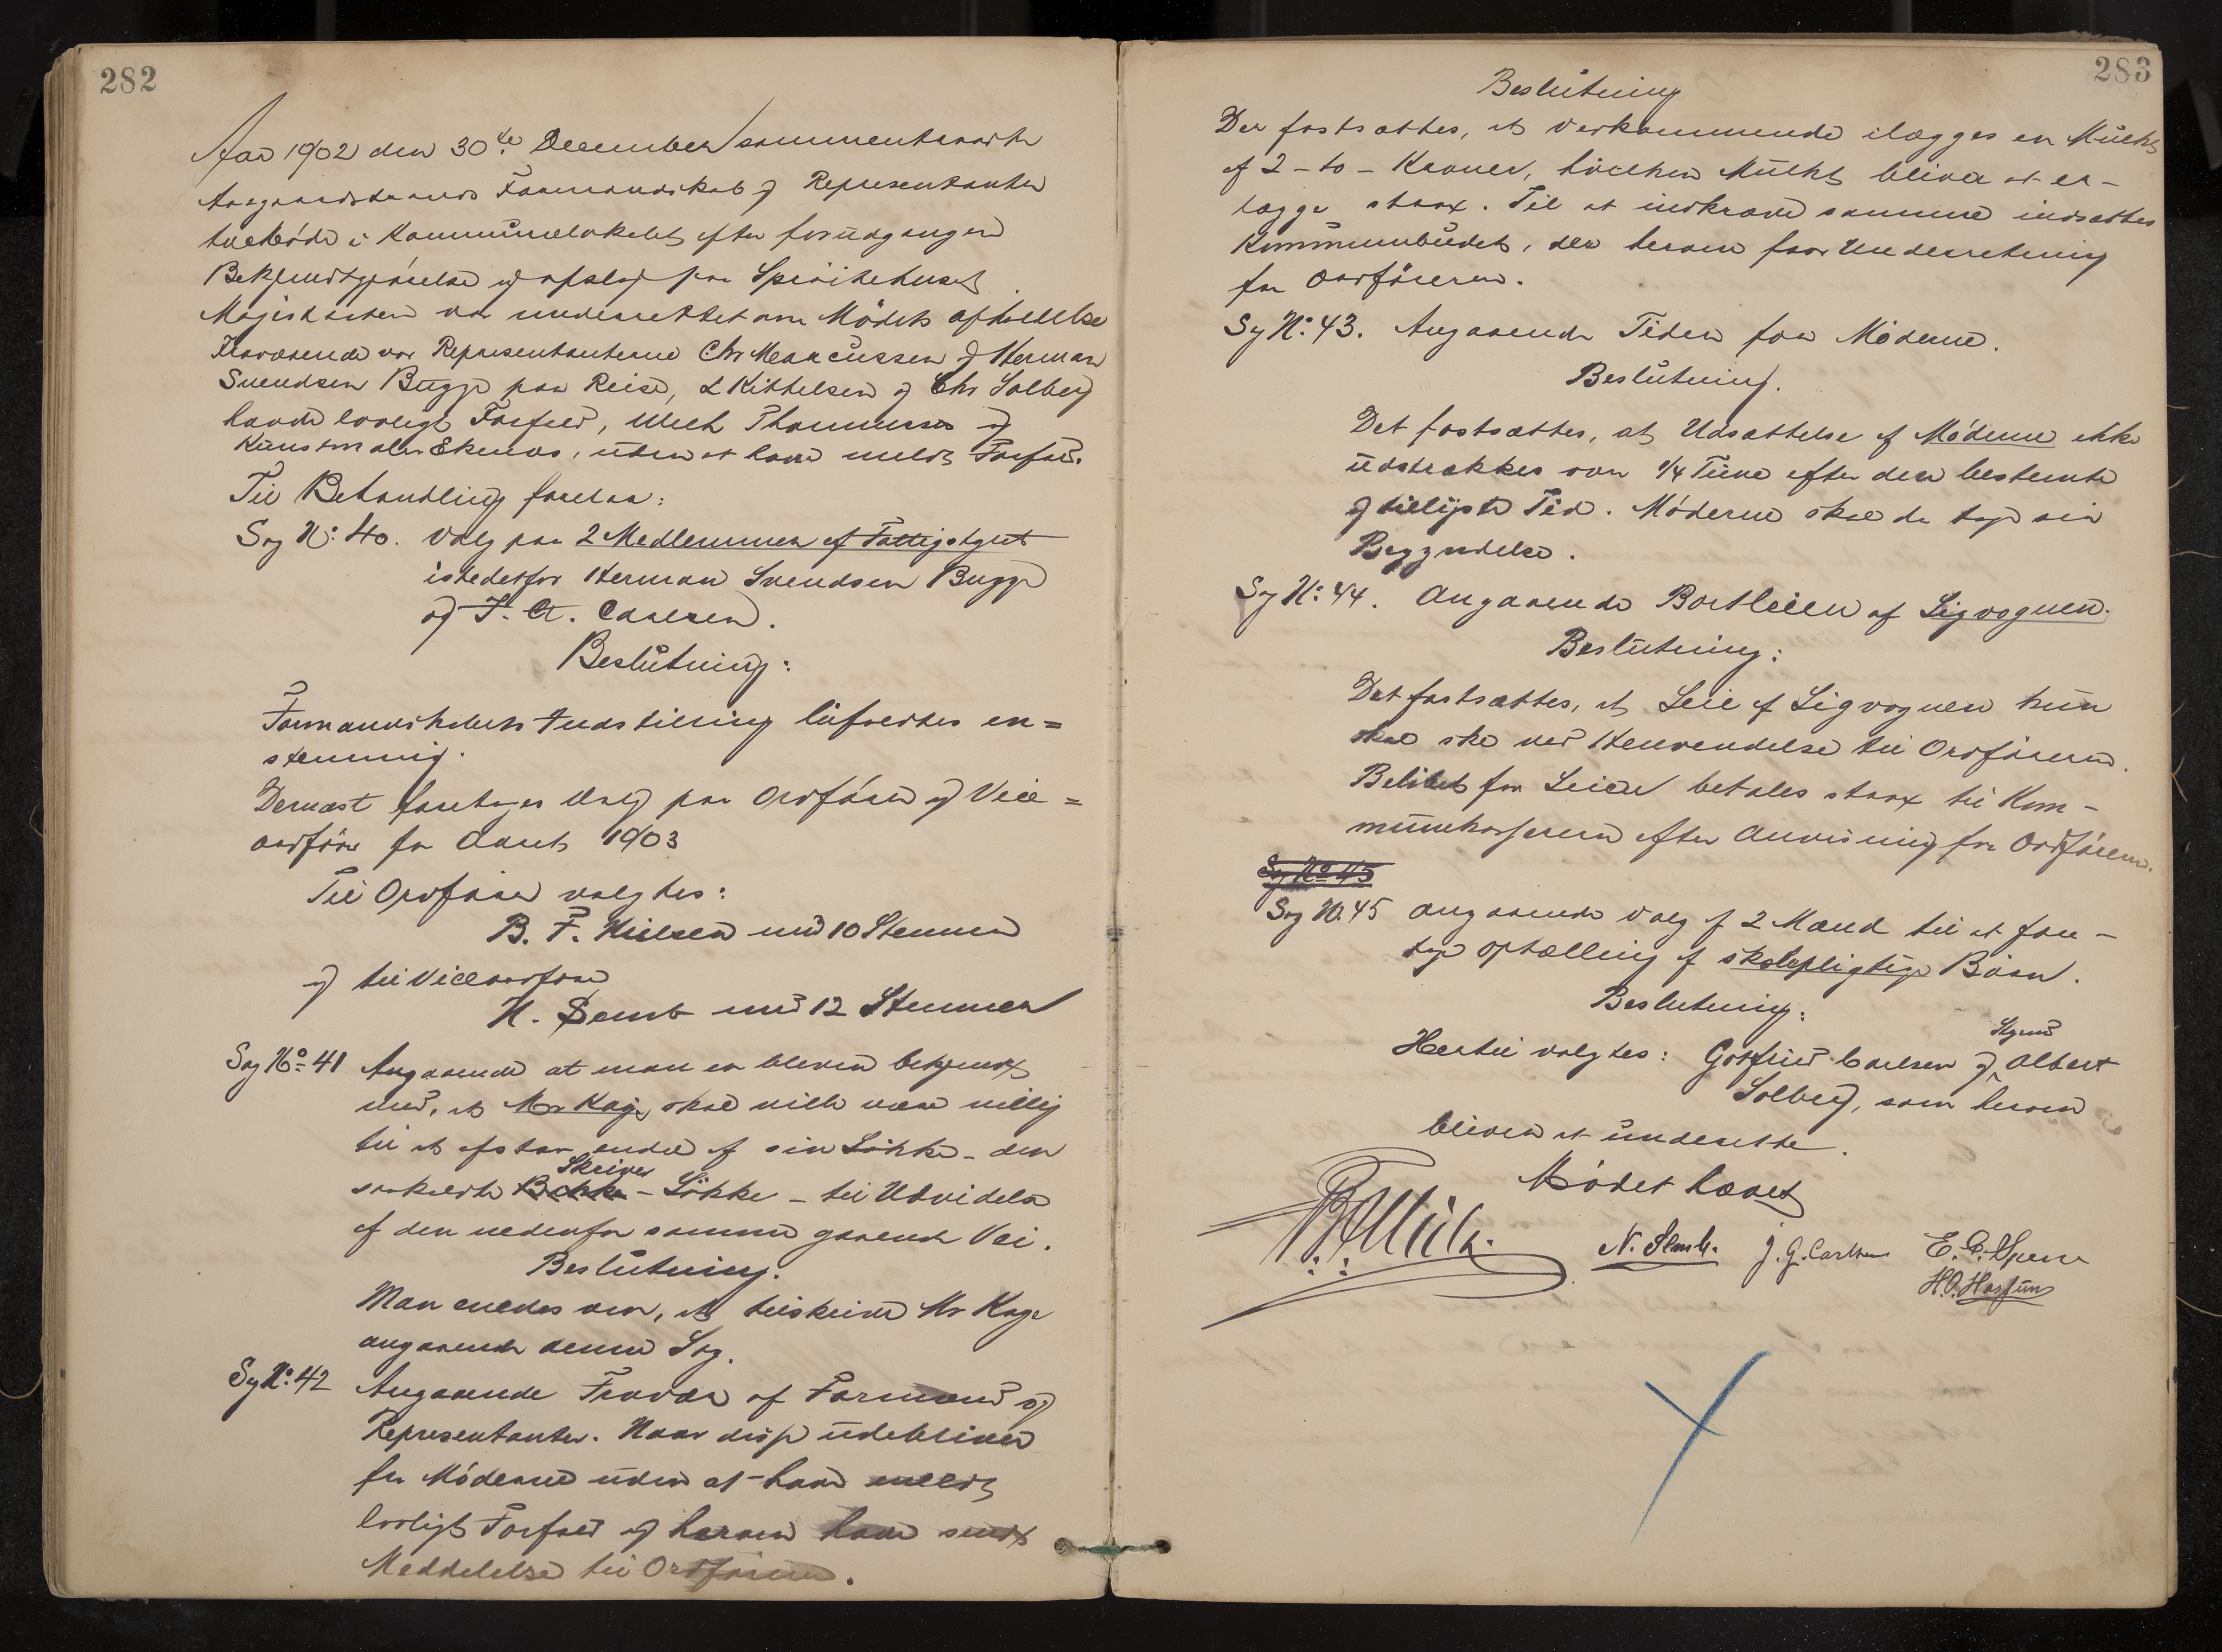 282
Aar 1902 den 30te December sammentraadte
Aasgaardstrands Formandskab og Repræsentanter
til Møde i Kommunelokalet efter forudgangen
Bekjendtgjørelse og opslag paa Sprøitehuset.
Magistraten var underrettet om Mødets afholdelse
Fraværende var Repræsentanterne Chr Marcussen og Herman
Svendsen Bugge paa Reise, L Kittelsen og Chr Solberg
havde lovligt Forfald, Ulich Thommesen og
Kunstmaler Ekenæs, uden at have meldt Forfald.
Til Behandling forelaa:
Sag No: 40. Valg paa 2 Medlemmer af Fattigstyret
istedetfor Herman Svendsen Bugge
og J. G. Carlsen.
Beslutning:
Formandskabets Indstilling bifaldtes en=
stemmig.
Dernæst foretoges Valg paa Ordfører og Vice=
ordfører for Aaret 1903
Til Ordfører valgtes:
B. F. Nielsen med 10 Stemmer
og til Viceordfører
N. Semb med 12 Stemmer
Sag No 41 Angaaende at man er bleven bekjendt
med, at Mr Kage skal ville være villig
til at afstaa endel af sin Løkke - den
saakaldte Skriver - Løkke - til Udvidelse
af den nedenfor samme gaaende Vei.
Beslutning.
Man enedes om, at tilskrive Mr Kage
angaaende denne Sag.
Sag No: 42 Angaaende Fravær af Formænd og
Repræsentanter. Naar disse udebliver
fra Møderne uden at have meldt
lovligt Forfald og herom have sendt
Meddelelse til Ordføreren.
283
Beslutning
Det fastsættes, at Vedkommende ilægges en Mulkt
af 2 - to - Kroner, hvilken Mulkt bliver at er-
lægge strax. Til at indkræve samme indsættes
Kommunebudet, der herom faar Underretning
fra Ordføreren.
Sag No: 43. Angaaende Tiden for Møderne.
Beslutning.
Det fastsættes, at Udsættelse af Møderne ikke
udstrækkes over 1/4 Time efter den bestemte
og tillyste Tid. Møderne skal da tage sin
Begyndelse.
Sag No: 44. Angaaende Bortleien af Ligvognen.
Beslutning:
Det fastsættes, at Leie af Ligvognen kun
skal ske ved Henvendelse til Ordføreren.
Beløbet for Leien betales strax til Kom-
munekassereren efter Anvisning fra Ordføreren.
Sag No 45
Sag No. 45 Angaaende Valg af 2 Mænd til at fore-
tage Optælling af skolepligtige Børn.
Beslutning:
Hertil valgtes: Gotfried Carlsen og Albert
Solberg, som herom
bliver at underrette.
Mødet hævet
N. Semb. J. G. Carlsen